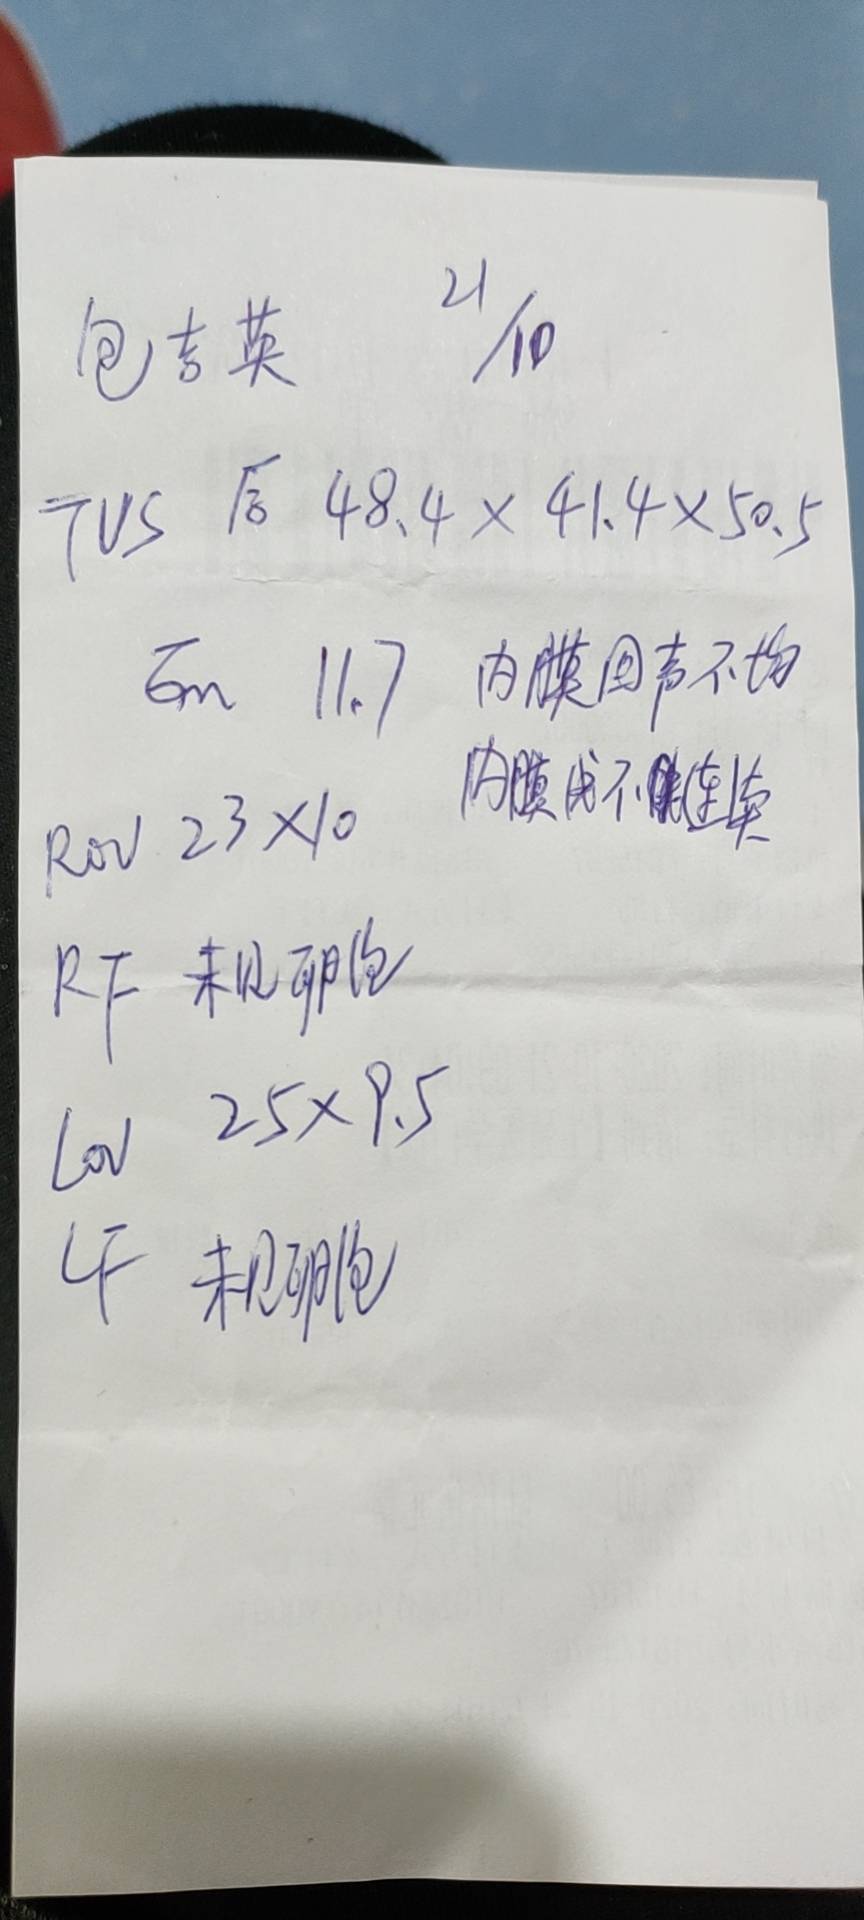 包吉英 21/10
TVS 后 48.4×41.4×50.5
Em 11.7 内膜回声不均
内膜线不连续
ROV 23×10
RF 未见卵泡
LOV 25×9.5
LF 未见卵泡